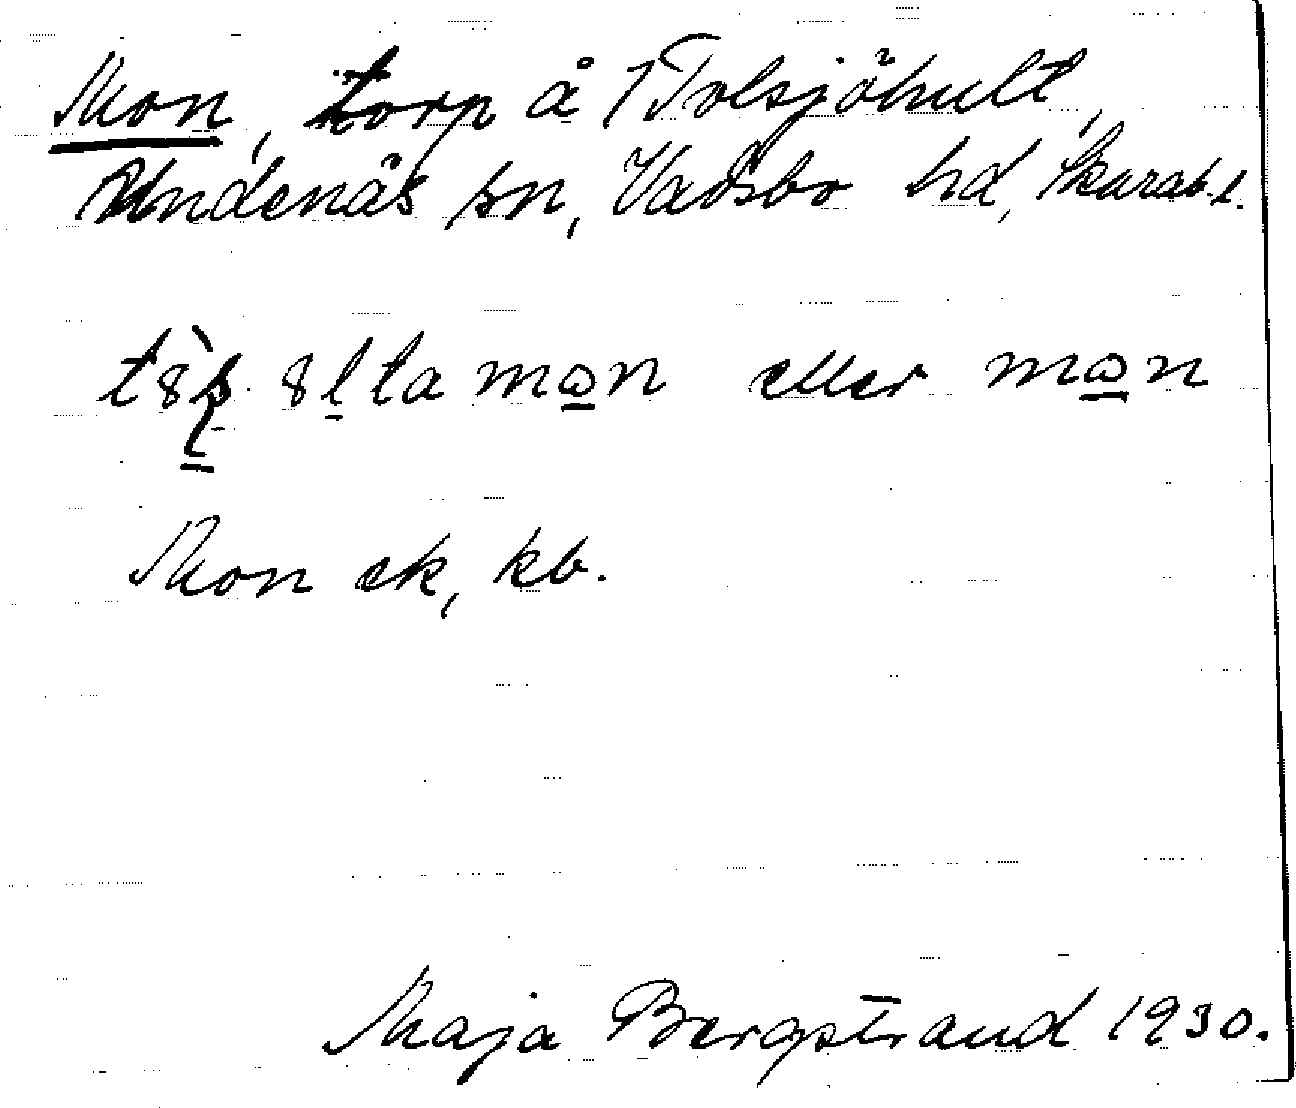 Mon, torp å 1 Tolsjöhult,
Undenäs sn, Vadsbo hd, Skarab. l.
eller
Mon ek, kb.
Maja Bergstrand 1930.